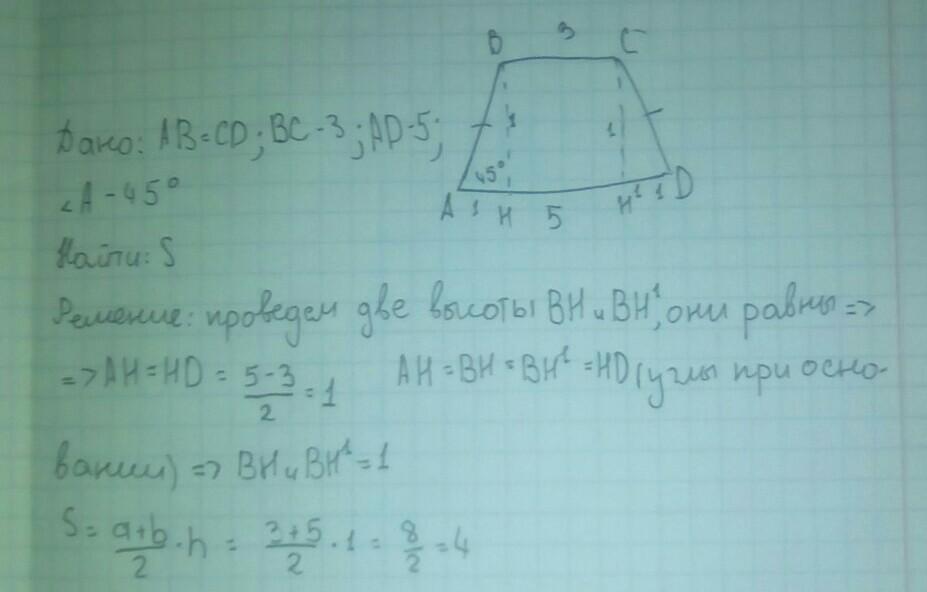 B 3 C
Дано: AB=CD; BC-3; AD-5;
1 1
∠A-45°
45°
A 1 H 5 H¹ 1 D
Найти: S
Решение: проведем две высоты BH и BH¹, они равны =>
=> AH=HD = (5-3)/2 = 1 AH=BH=BH¹=HD (углы при осно-
вании) => BH и BH¹=1
S = (a+b)/2 · h = (3+5)/2 · 1 = 8/2 = 4